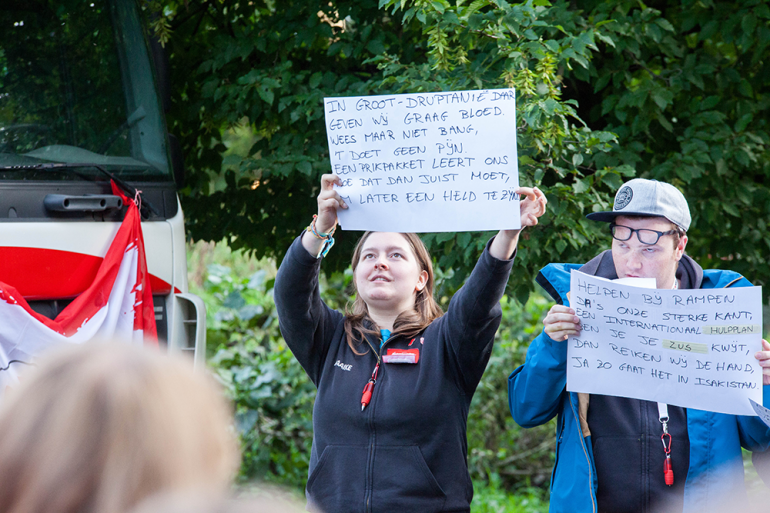 IN GROOT-DRUPTANIË DAAR
GEVEN WIJ GRAAG BLOED.
WEES MAAR NIET BANG,
'T DOET GEEN PIJN.
EEN PRIKPAKKET LEERT ONS
HOE DAT DAN JUIST MOET,
LATER EEN HELD TE ZIJN
HELPEN BIJ RAMPEN
DA'S ONZE STERKE KANT,
EEN INTERNATIONAAL HULPPLAN
BEN JE JE ZUS KWIJT,
DAN REIKEN WIJ DE HAND,
JA ZO GAAT HET IN ISAKISTAN.